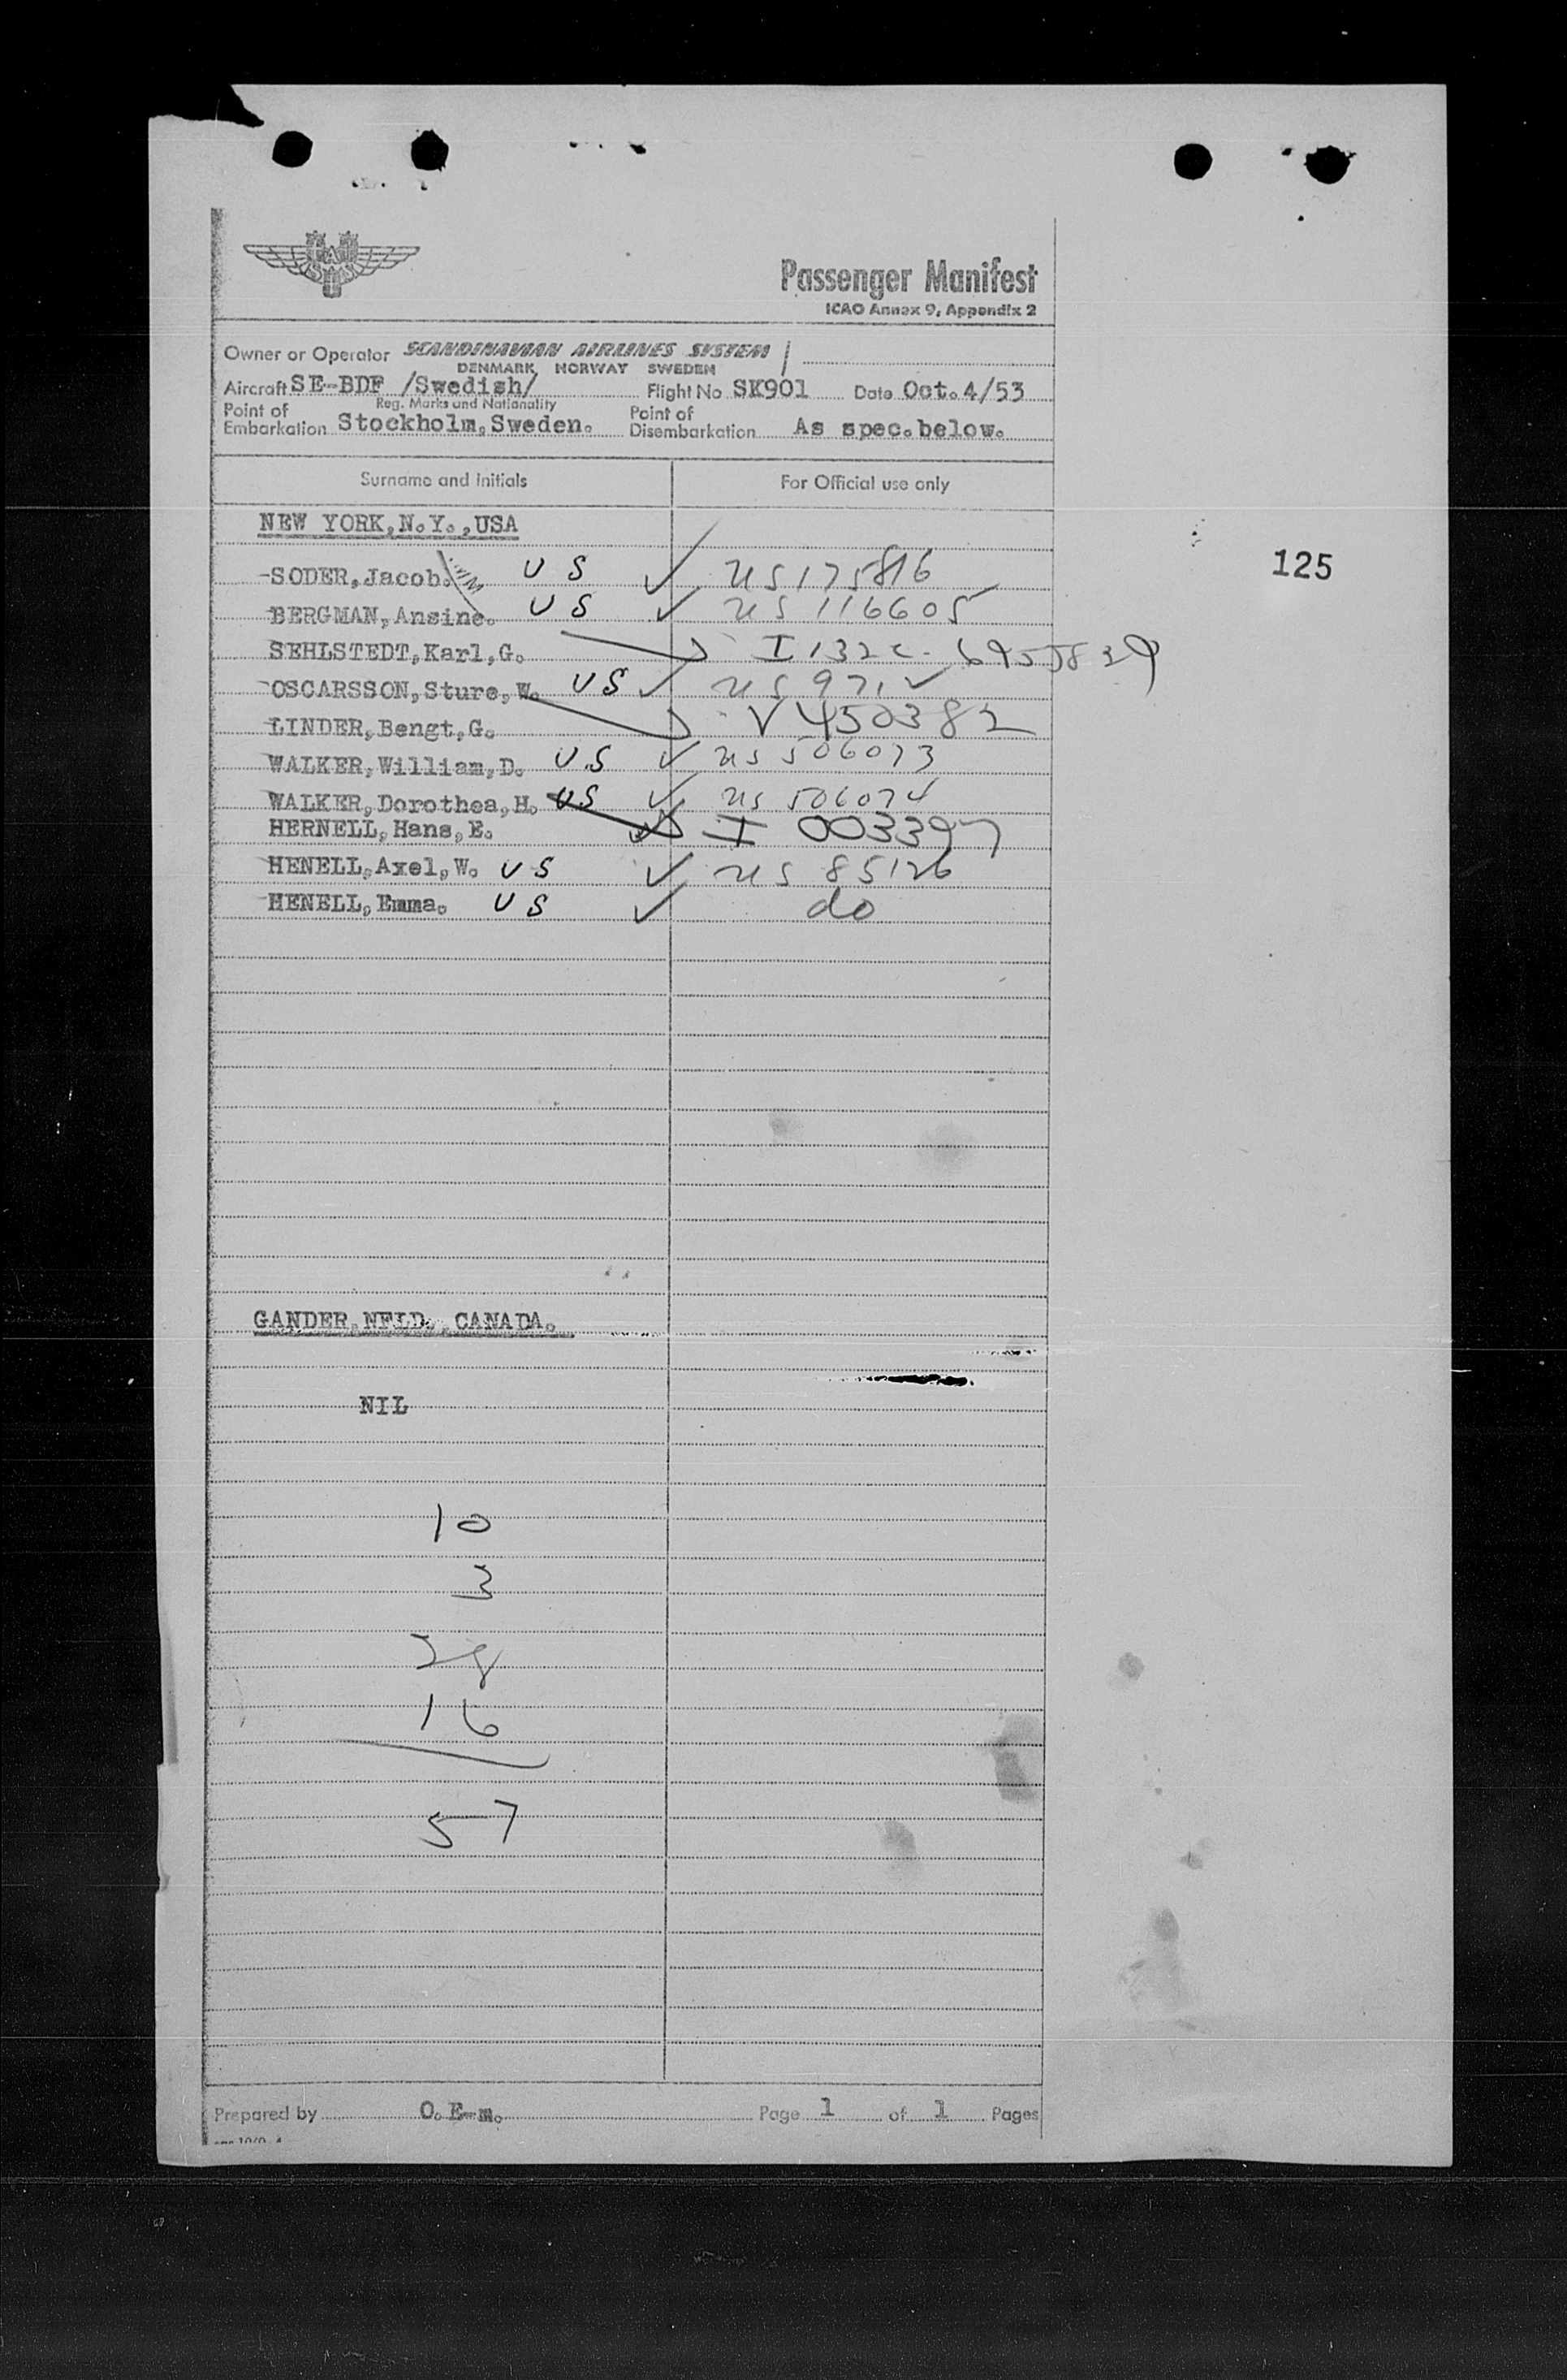 SAS
Passenger Manifest
ICAO Annex 9, Appendix 2
Owner or Operator SCANDINAVIAN AIRLINES SYSTEM
DENMARK NORWAY SWEDEN
Aircraft SE-BDF /Swedish/ Flight No SK901 Date Oct.4/53
Reg. Marks and Nationality
Point of Embarkation Stockholm,Sweden. Point of Disembarkation As spec.below.
Surname and initials For Official use only
NEW YORK,N.Y.,USA
125
-SODER,Jacob. US ✓ US 175816
BERGMAN,Ansine. US ✓ US 116605
SEHLSTEDT,Karl,G. I 132
OSCARSSON,Sture,W. US ✓ US 971
LINDER,Bengt,G. V 450382
WALKER,William,D. US ✓ US 506073
WALKER,Dorothea,H. US ✓ US 506074
HERNELL,Hans,E. I 003397
HENELL,Axel,W. US ✓ US 85126
HENELL,Emma. US ✓ do
GANDER,NFLD.,CANADA.
NIL
10
3
28
16
57
Prepared by O.E-m. Page 1 of 1 Pages